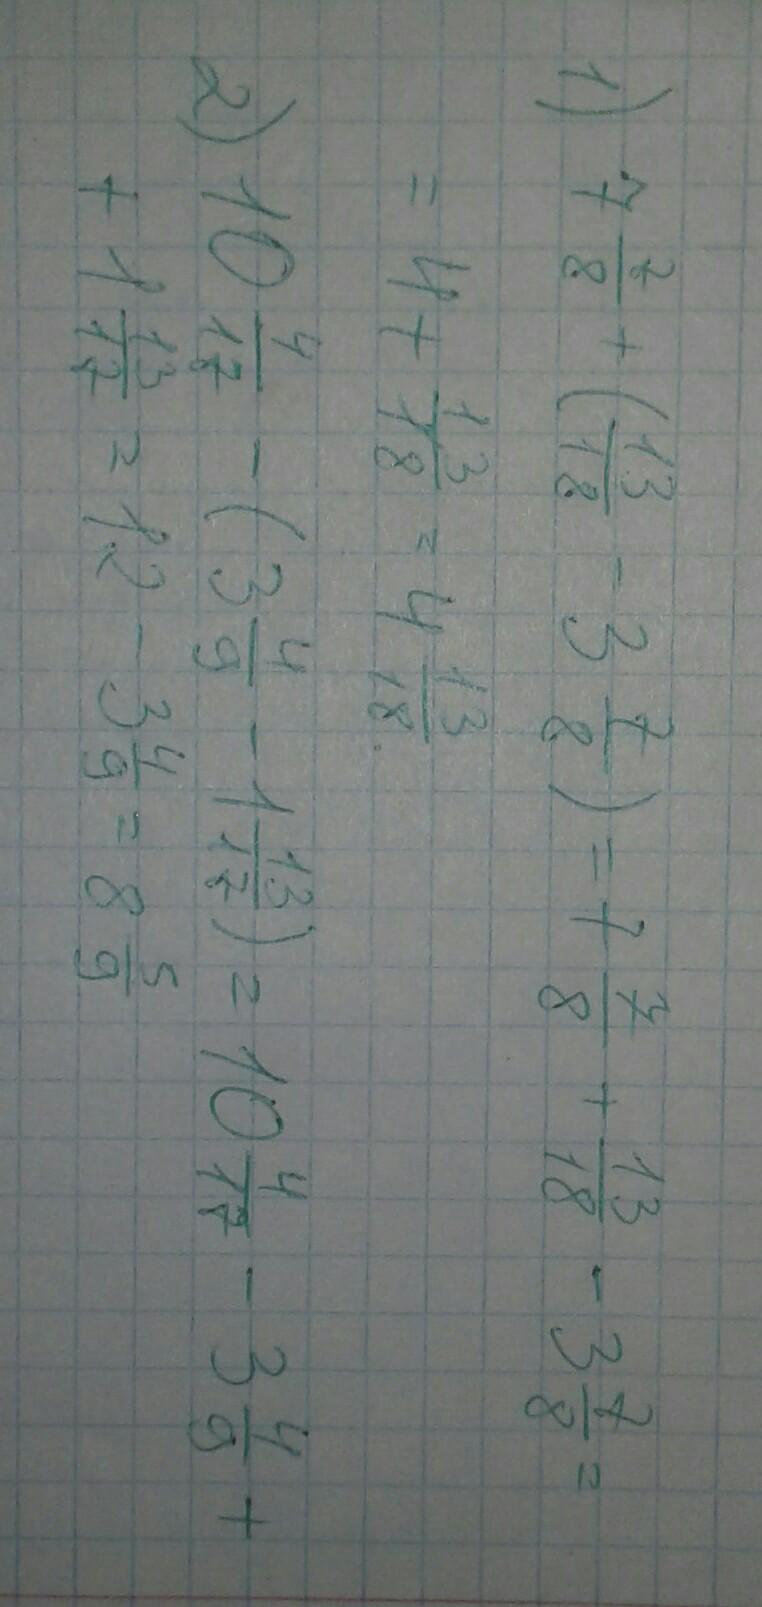 1) 7 7/8 + (13/18 - 3 7/8) = 7 7/8 + 13/18 - 3 7/8 =
= 4 + 13/18 = 4 13/18.
2) 10 4/17 - (3 4/9 - 1 13/17) = 10 4/17 - 3 4/9 +
+ 1 13/17 = 12 - 3 4/9 = 8 5/9